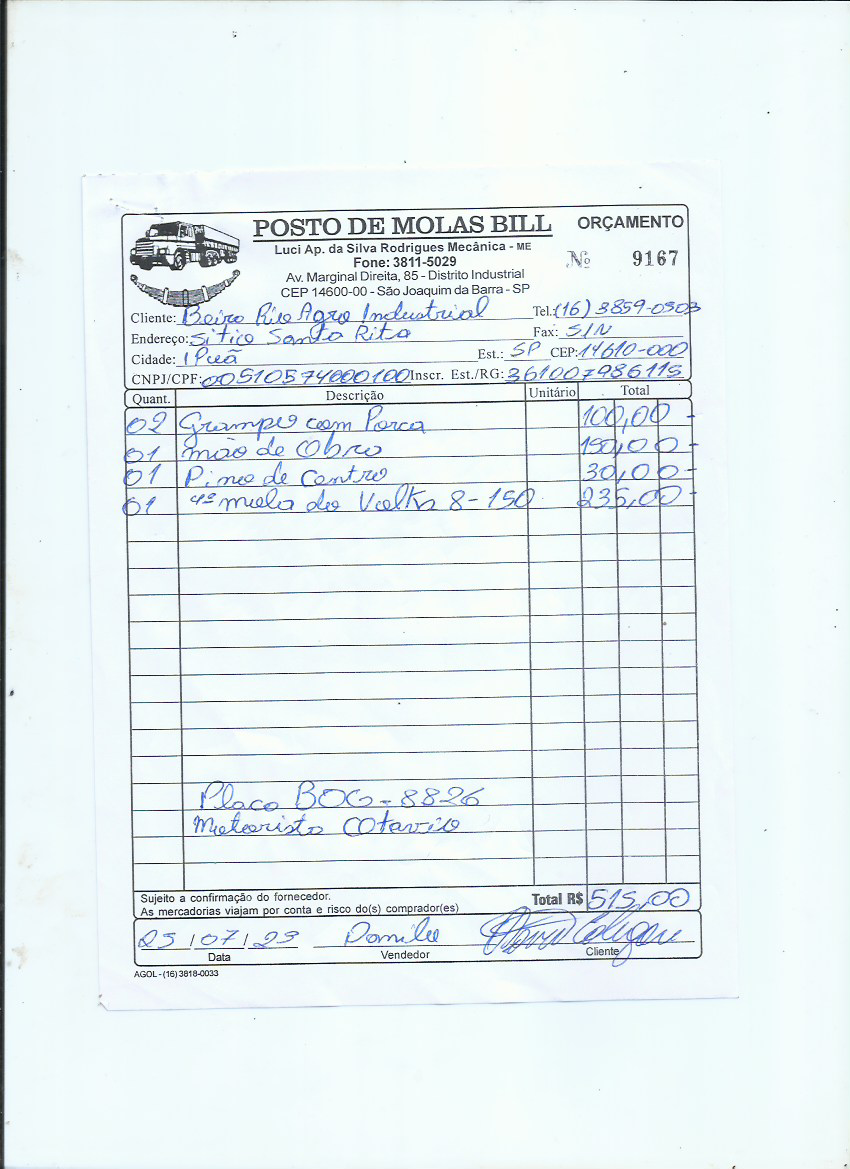 POSTO DE MOLAS BILL
ORÇAMENTO
Luci Ap. da Silva Rodrigues Mecânica - ME
Fone: 3811-5029
Nº 9167
Av. Marginal Direita, 85 - Distrito Industrial
CEP 14600-00 - São Joaquim da Barra - SP
Cliente: Beira Rio Agro Industrial Tel.: (16) 3859-0303
Endereço: Sitio Santa Rita Fax: S/N
Cidade: IPuã Est.: SP CEP: 14610-000
CNPJ/CPF: 00510574000100 Inscr. Est./RG: 361007986115
Quant. Descrição Unitário Total
02 Grampo com Porca 100,00 -
01 mão de Obra 150,00 -
01 Pino de Centro 30,00 -
01 4ª mola do Volks 8-150 235,00 -
Placa BOG-8826
Motorista Otavio
Sujeito a confirmação do fornecedor.
As mercadorias viajam por conta e risco do(s) comprador(es)
Total R$ 515,00
25/07/23 Danilo
Data Vendedor Cliente
AGOL - (16) 3818-0033